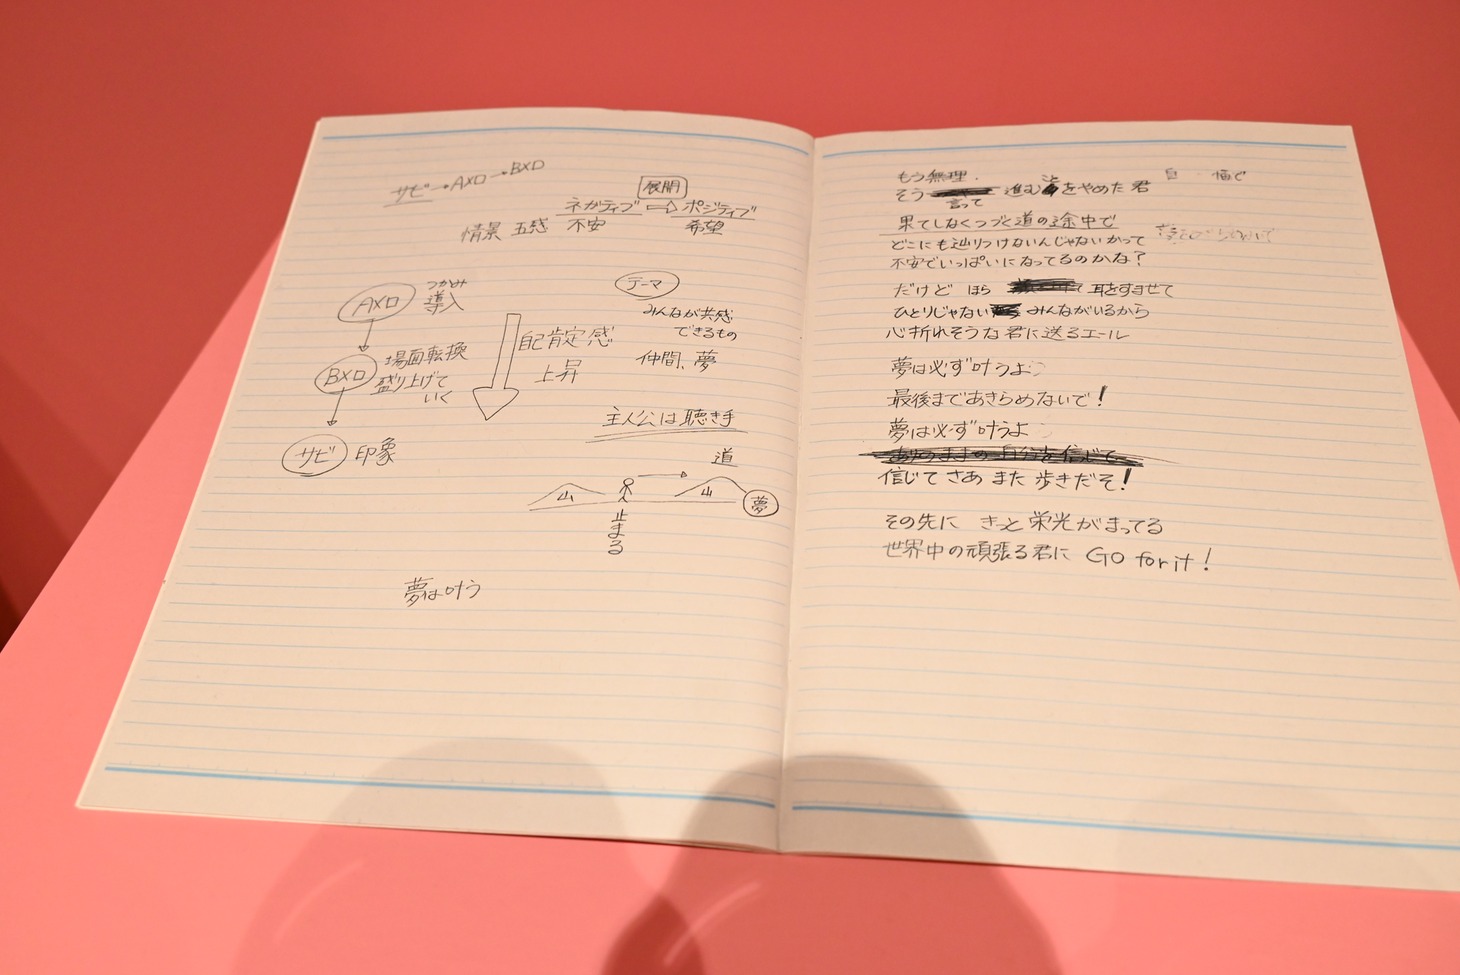 サビ→Aメロ→Bメロ
展開
ネガティブ ⇨ ポジティブ
情景 五感 不安 希望
Aメロ つかみ 導入
Bメロ 場面転換
盛り上げて
いく
サビ 印象
自己肯定感
上昇
テーマ
みんなが共感
できるもの
仲間、夢
主人公は聴き手
道
山 山 夢
止まる
夢は叶う
もう無理.
そう 言って 進む 歩をやめた君
果てしなくつづく道の途中で
どこにも辿りつけないんじゃないかって
不安でいっぱいになってるのかな?
だけど ほら 耳をすませて
ひとりじゃない みんながいるから
心折れそうな君に送るエール
夢は必ず叶うよ
最後まであきらめないで!
夢は必ず叶うよ
ありのままの自分を信じて
信じて さあ また 歩きだそ!
その先に きっと栄光がまってる
世界中の頑張る君に Go for it!